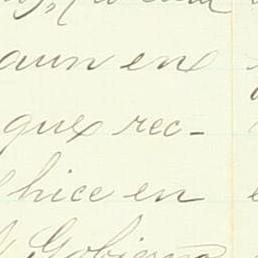 aun en
que rec-
hice en
Gobierno